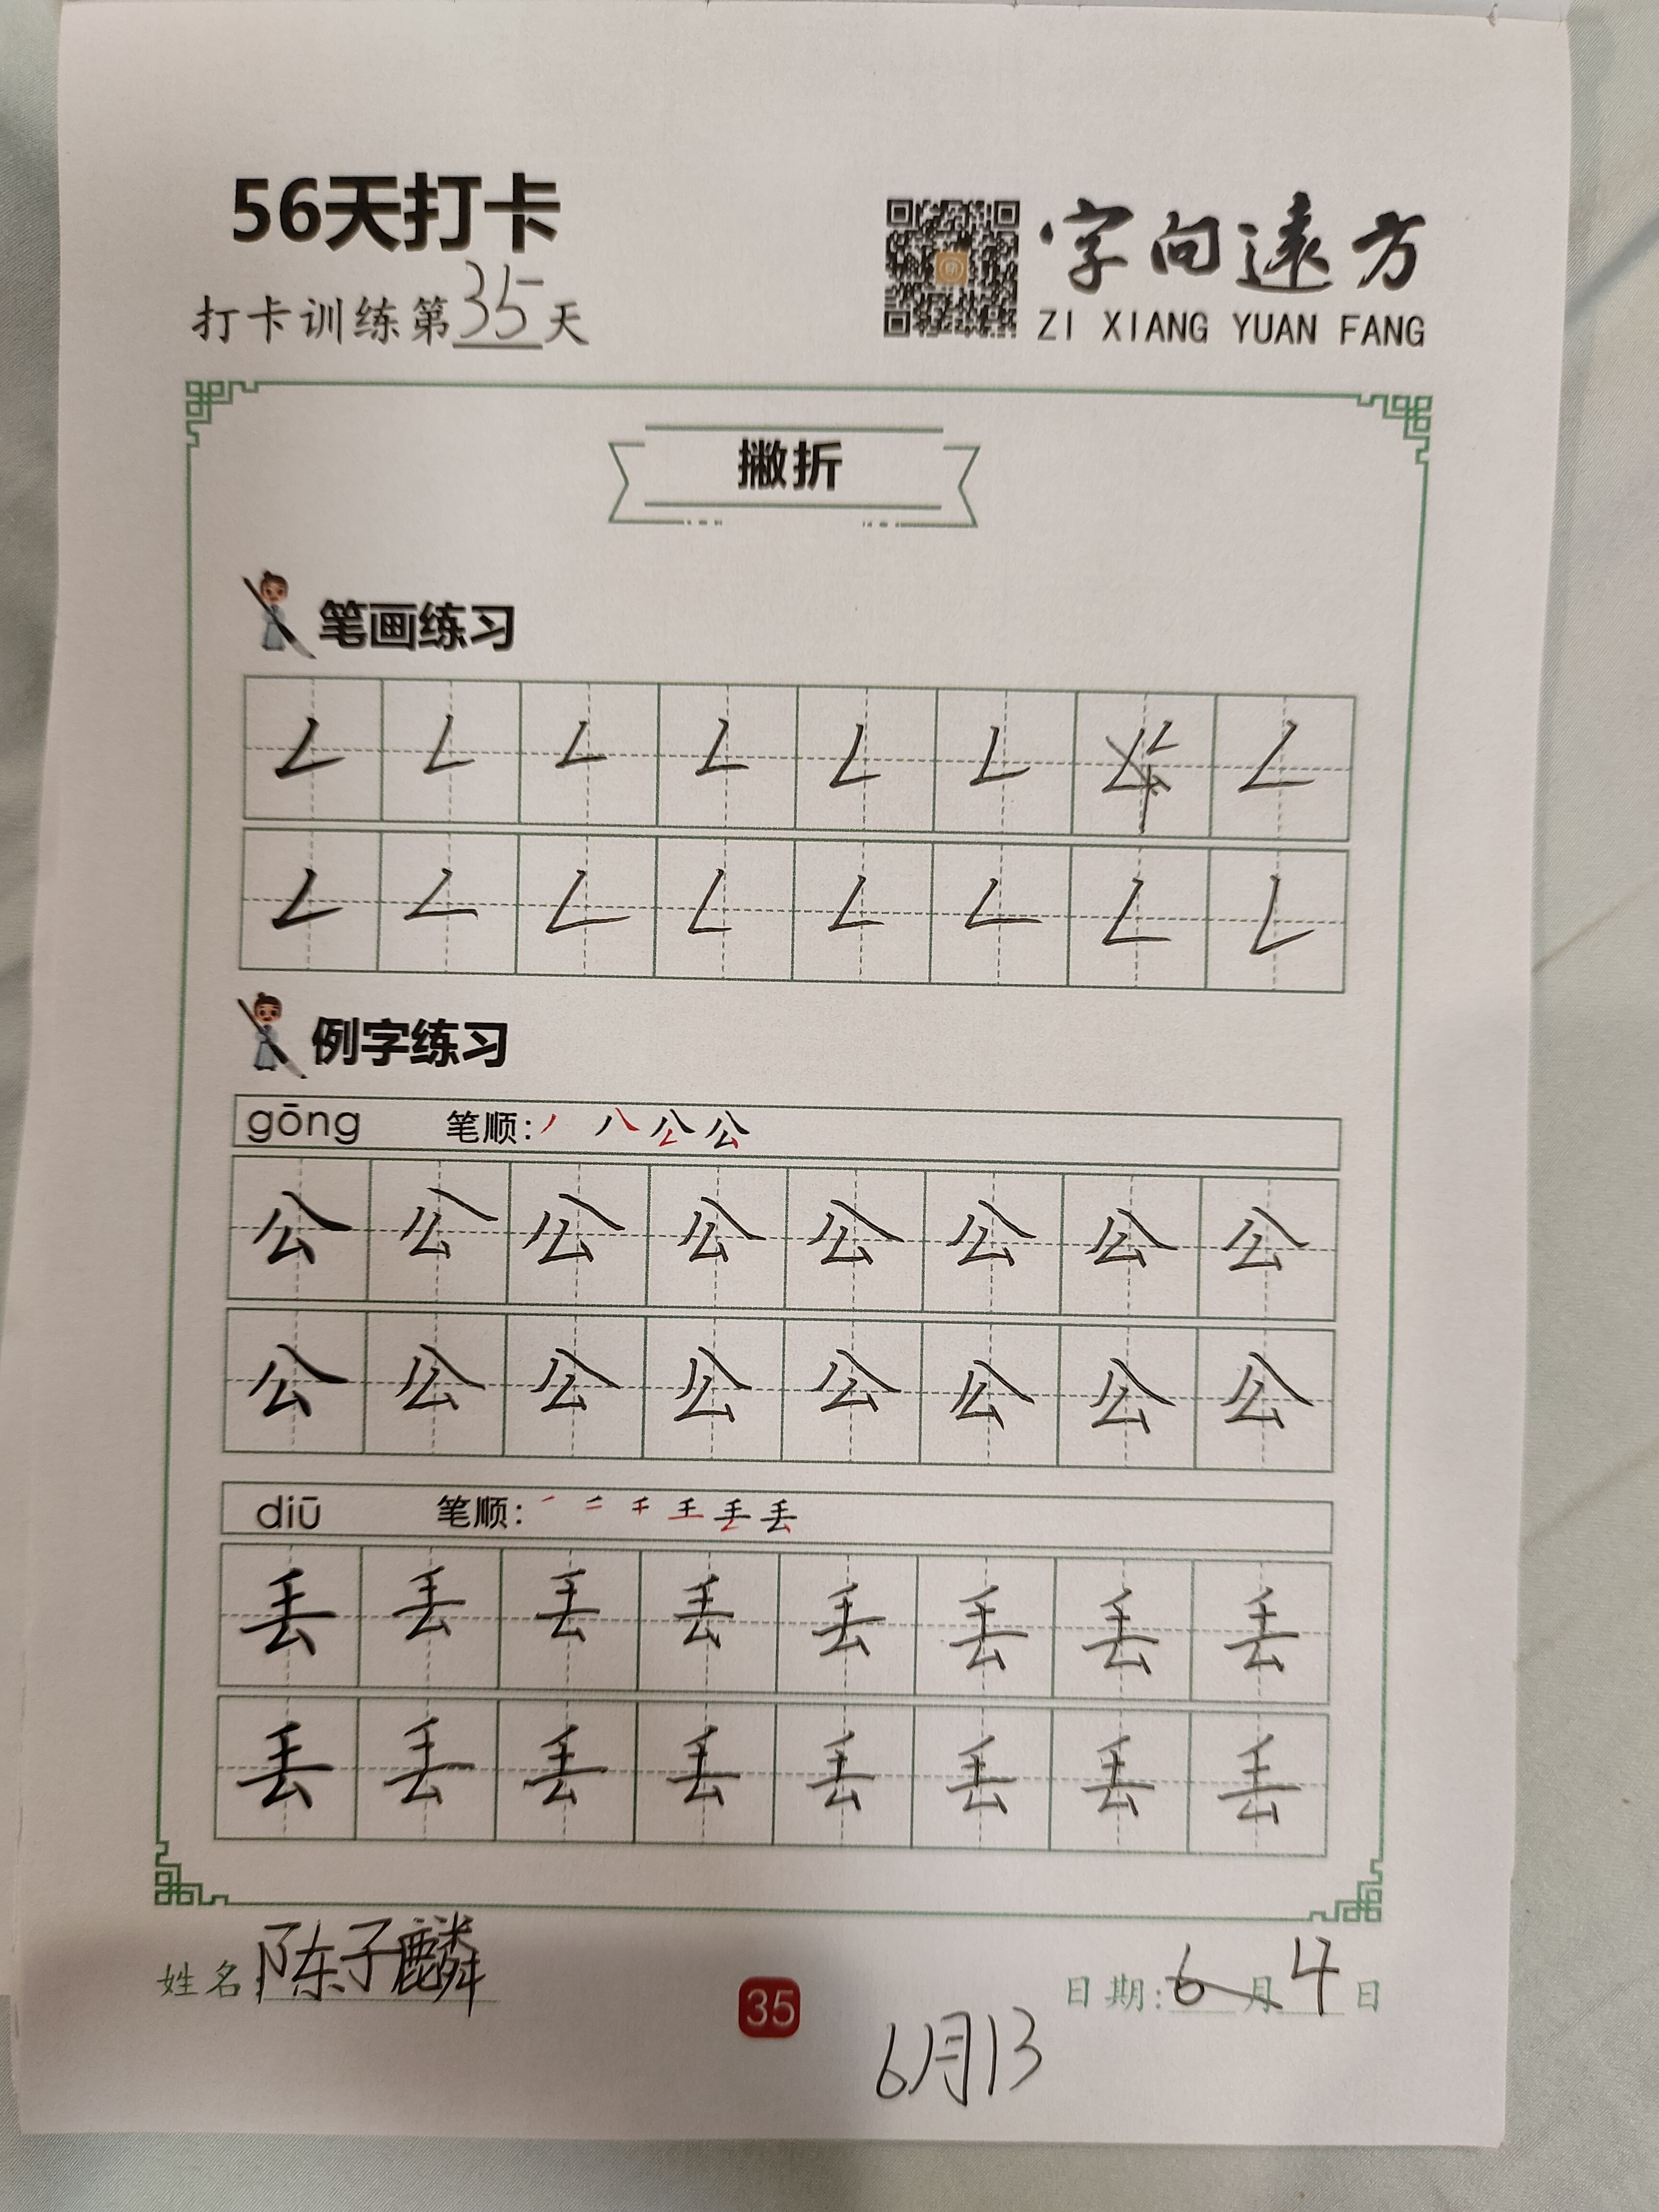 56天打卡
打卡训练第35天
字向遠方
ZI XIANG YUAN FANG
撇折
笔画练习
例字练习
gōng 笔顺: 丿 八 公 公
公 公 公 公 公 公 公 公
公 公 公 公 公 公 公 公
diū 笔顺: 一 二 千 王 丢 丢
丢 丢 丢 丢 丢 丢 丢 丢
丢 丢 丢 丢 丢 丢 丢 丢
姓名:陈子麟
35
日期:6月4日
6月13